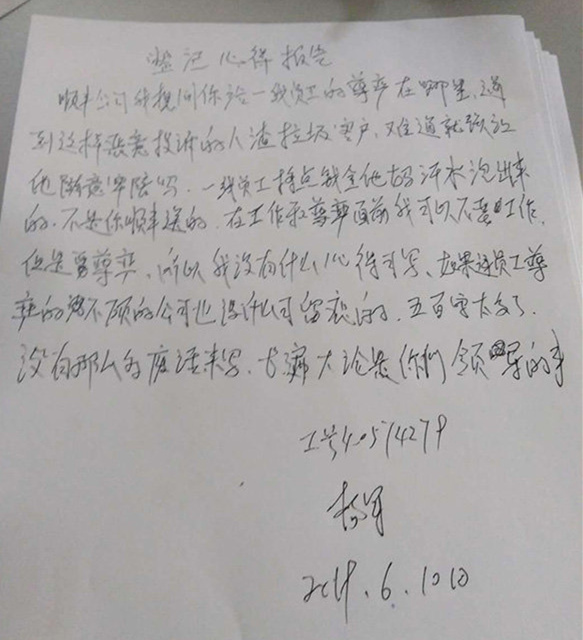 登记心得报告
顺丰公司我想问你给一线员工的尊严在哪里，遇
到这样恶意投诉的人渣垃圾客户，难道就强行
他随意牢骚吗．一线员工挣点钱全他妈汗水泡出来
的．不是你顺丰送的．在工作和尊严面前我可以不要工作
但是要尊严、所以我没有什么心得可写、如果连员工尊
严的都不顾的公司也没什么可留恋的．五百字太多了．
没有那么多废话来写．长篇大论是你们领导的事
工号40574279
杨军
6.10